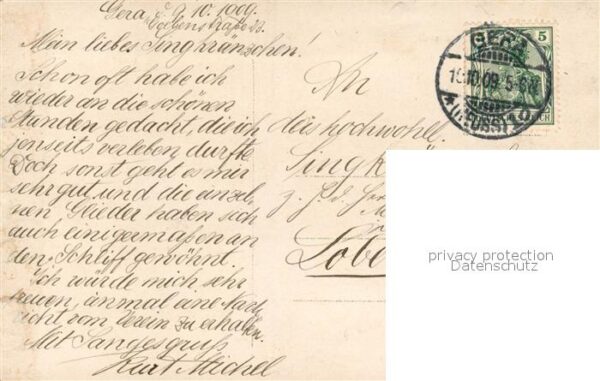 Gera, d. 9. 10. 1909.
Mein liebes Singkränzchen!
Schon oft habe ich
wieder an die schönen
Stunden gedacht, die ich
jenseits verleben durfte
Doch sonst geht es mir
sehr gut und die anzel-
nen Glieder haben sich
auch einigermaßen an
den Schliff gewöhnt.
Ich würde mich sehr
freuen, einmal eine Karte
nicht vom Verein zu erhalten.
Mit Sangesgruß
Kurt Michel
An
das hochwohll.
Singk
z. Hd.
Lobe
GERA
10.09. 5-6
5
privacy protection
Datenschutz